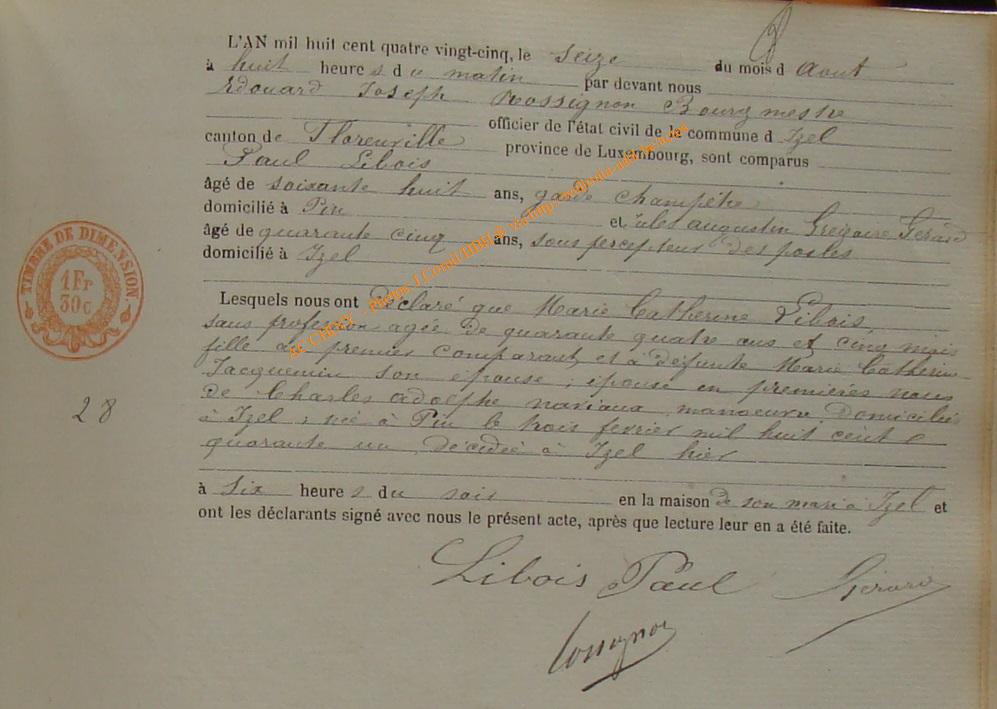 L'AN mil huit cent quatre vingt-cinq, le seize du mois d aout
à huit heure s d u matin par devant nous
Edouard Joseph Rossignon Bourgmestre
officier de l'état civil de la commune d Izel
canton de Florenville province de Luxembourg, sont comparus
Paul Libois
âgé de soixante huit ans, garde champêtre
domicilié à Pin et Jules augustin Grégoire Gérard
âgé de quarante cinq ans, sous percepteur des postes
domicilié à Izel
Lesquels nous ont Déclaré que Marie Catherine Libois,
sans profession agée de quarante quatre ans et cinq mois
fille du premier comparant et à défunte Marie Catherine
Jacquemin son épouse ; épouse en premières noces
de Charles adolphe naviaux manoeuvre domicilié
à Izel ; née à Pin le trois fevrier mil huit cent
quarante un, décédée à Izel hier
à Six heure s du soir en la maison de son mari à Izel et
ont les déclarants signé avec nous le présent acte, après que lecture leur en a été faite.
Libois Paul Gérard
Rossignon
TIMBRE DE DIMENSION
1 Fr
30c
28
AC CHINY